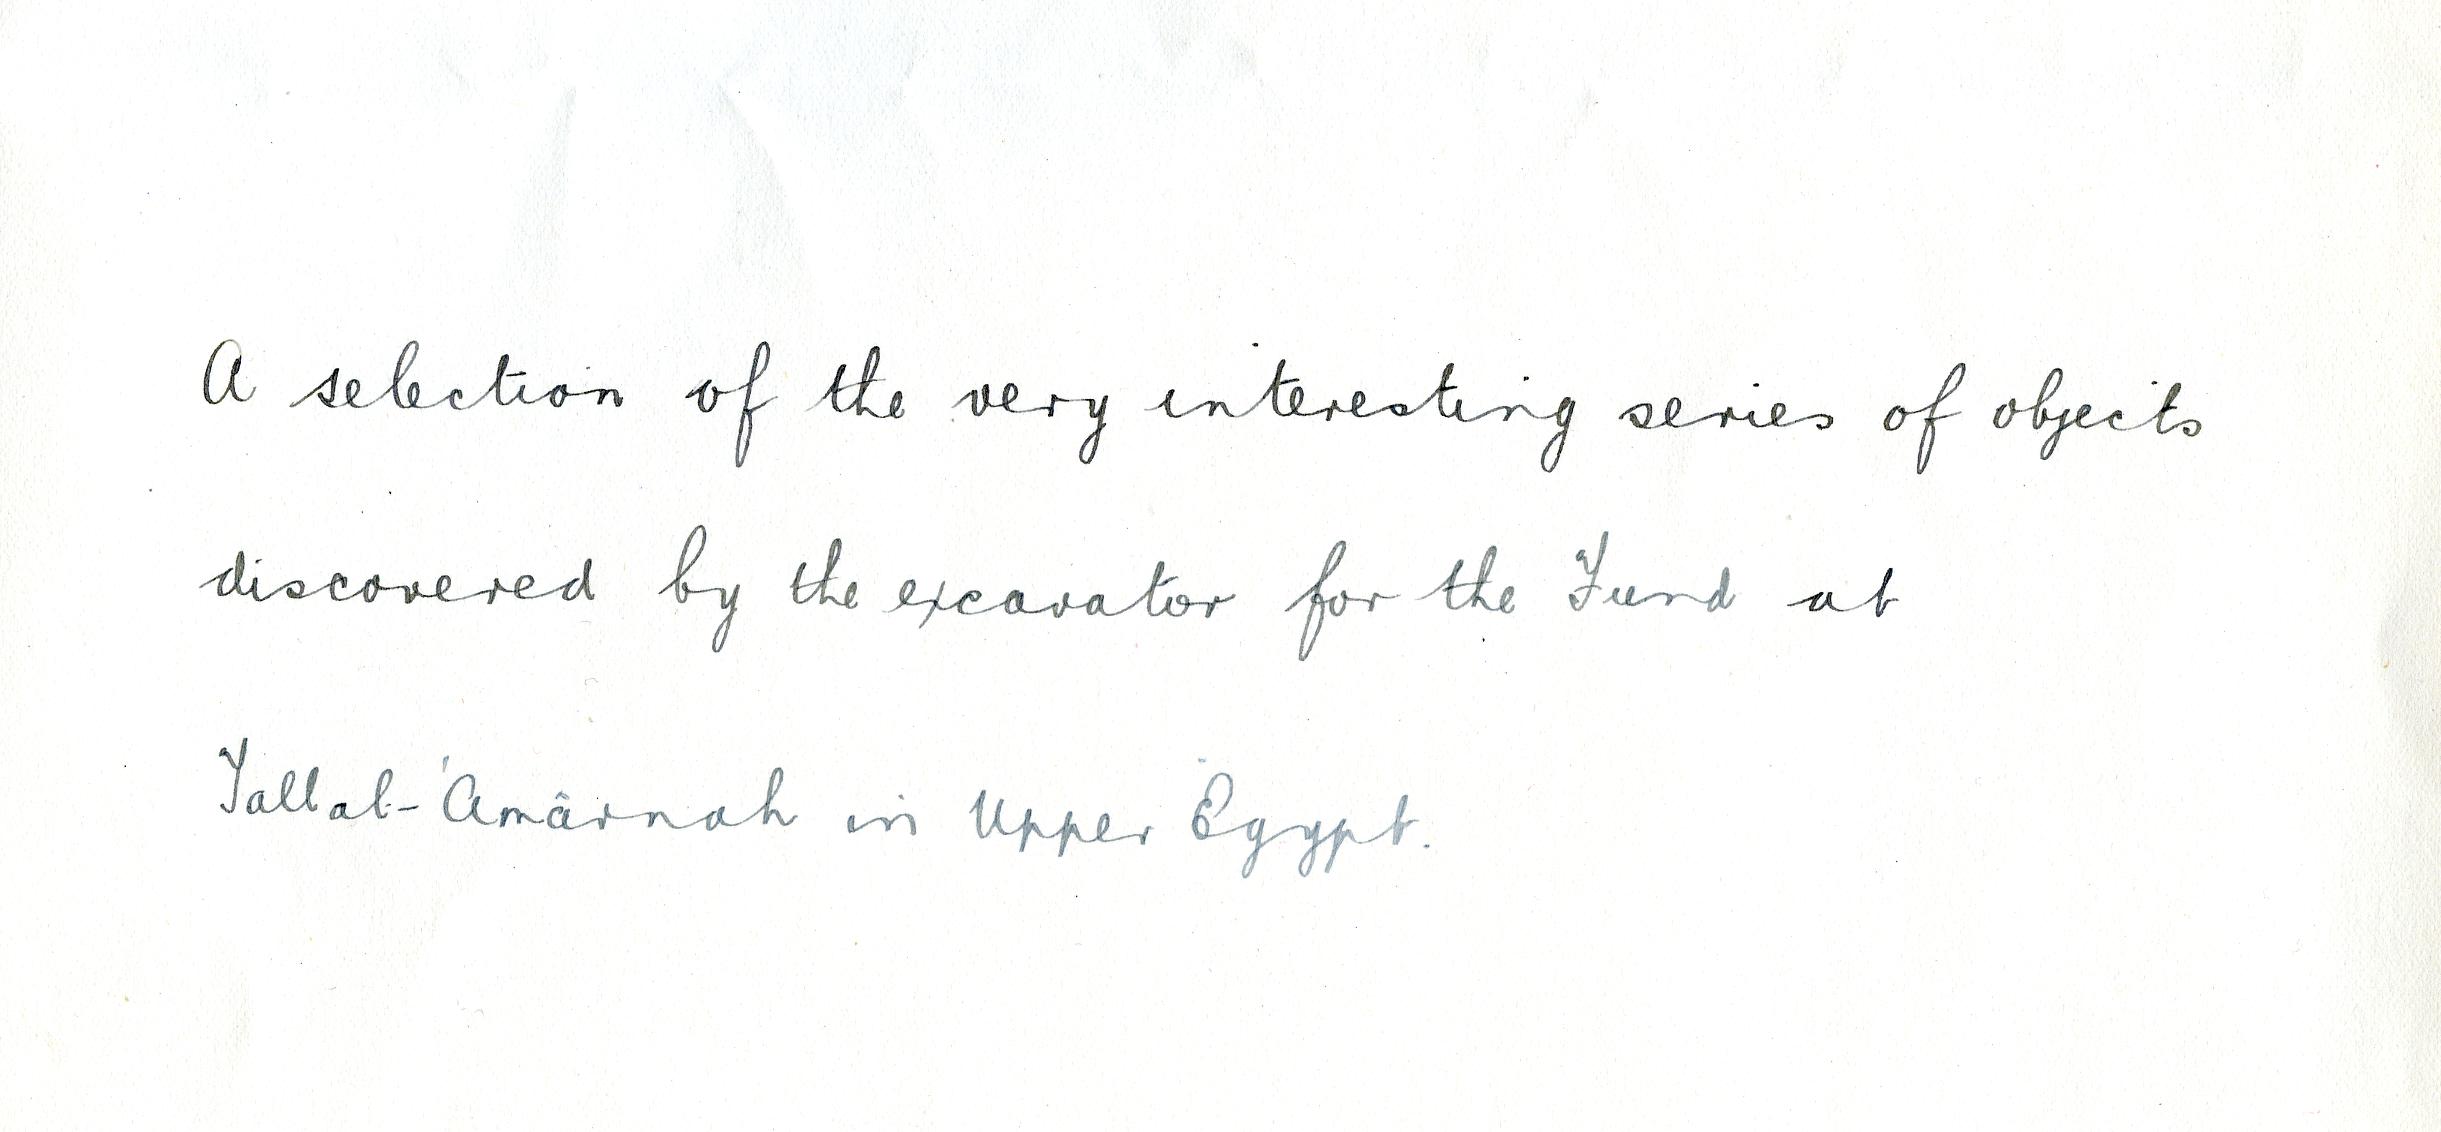 A selection of the very interesting series of objects
discovered by the excavator for the Fund at
Tall al-'Amârnah in Upper Egypt.